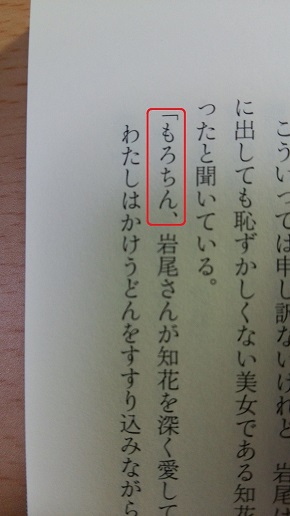 こういっては申し訳ないけれど、岩尾は
に出しても恥ずかしくない美女である知花
ったと聞いている。
「もろちん、岩尾さんが知花を深く愛して
わたしはかけうどんをすすり込みながら